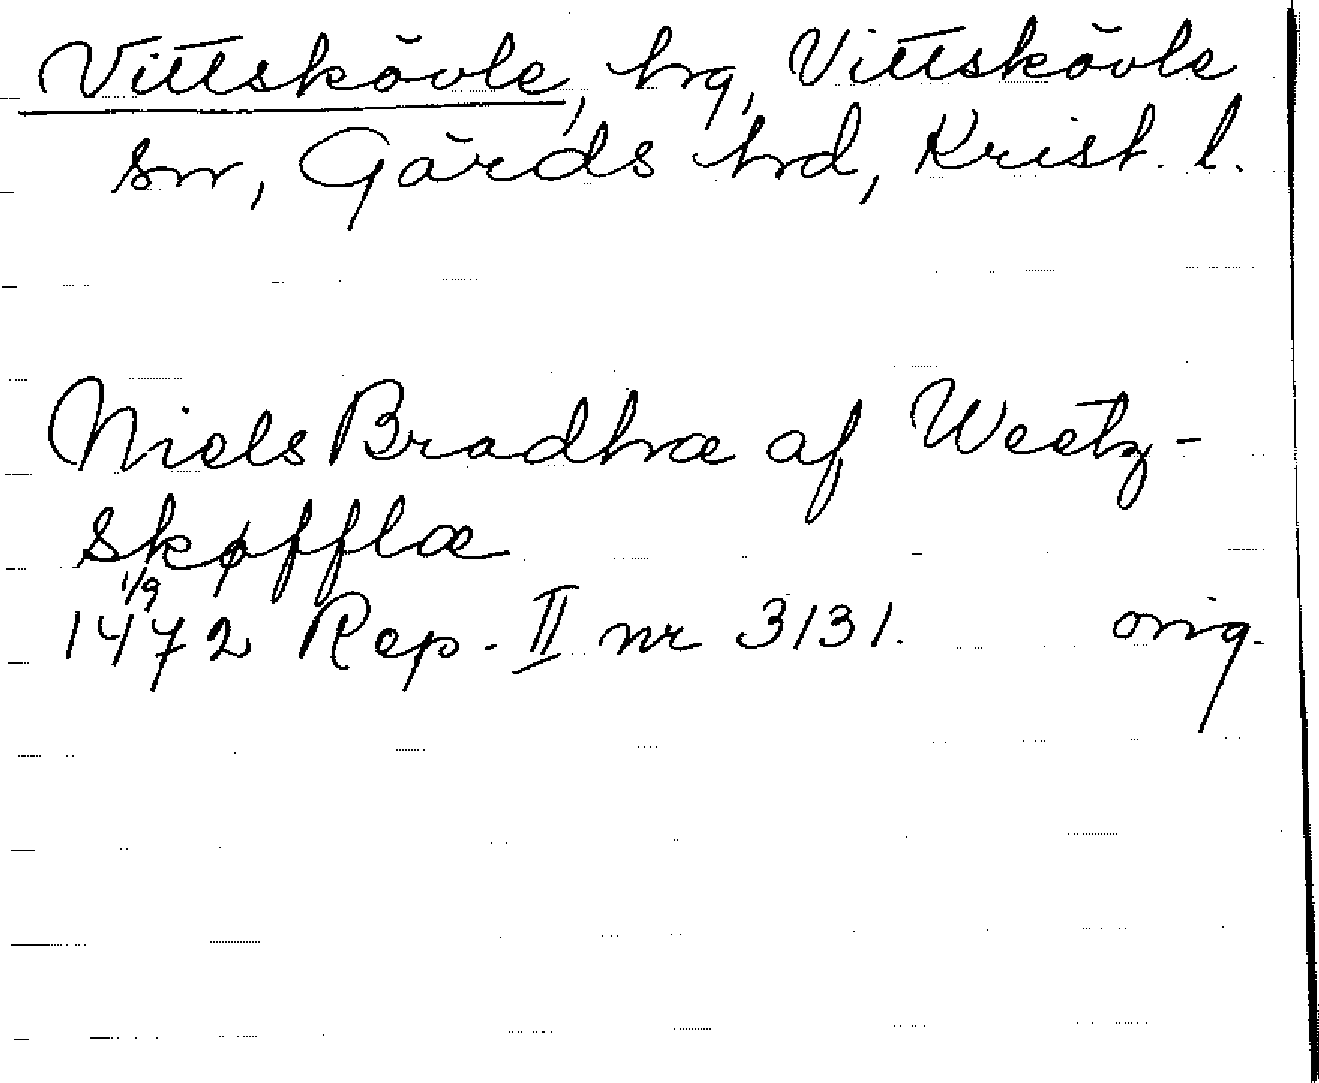 Vittskövle, hrg, Vittskövle
sn, Gärds hrd, Krist. l.
Niels Bradhræ af Weetz-
skøfflæ
1/9
1472 Rep. II nr 3131. orig.